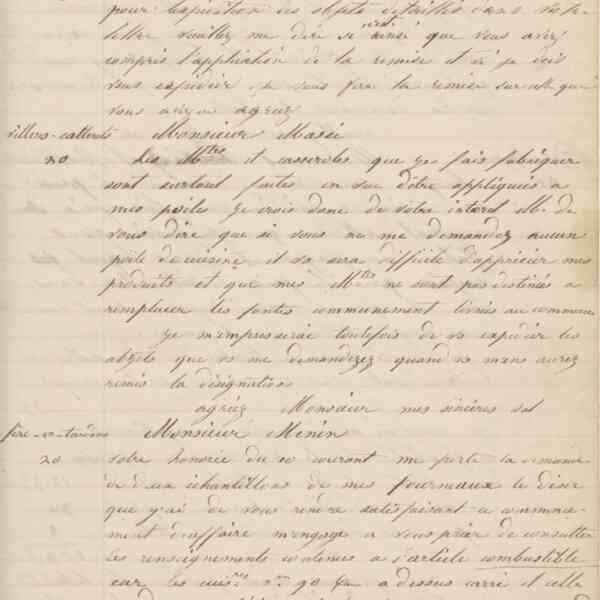 pour expédition des objets détaillés dans votre
lettre veuillez me dire si c'est ainsi que vous avez
compris l'application de la remise et si je dois
vous expédier je vous fera la remise sur celle que
vous agréez
villers-cotterets Monsieur Massé
20 Les Mtres et casseroles que je fais fabriquer
sont surtout faites en vue d'être appliqués à
mes poêles je crois donc de votre intéret M. de
vous dire que si vous ne me demandez aucun
poële de cuisine il vs sera difficile d'apprécier mes
produits et que mes Mtres ne sont pas destinés a
remplacer les fontes communement livrés au commerce
Je m'empresserai toutefois de vs expédier les
objets que vs me demanderez quand vs m'en aurez
remis la désignation
agréez Monsieur mes sincères sal
fère-en-tardenois Monsieur Menin
20 votre honorée du 20 courant me porte la demande
de deux échantillons de mes fourneaux le désir
que j'ai de vous rendre satisfaisant ce commence-
ment d'affaire m'engage a vous prier de consulter
les renseignements contenus a l'article combustible
car les cuisres 90 a dessus carré et celle